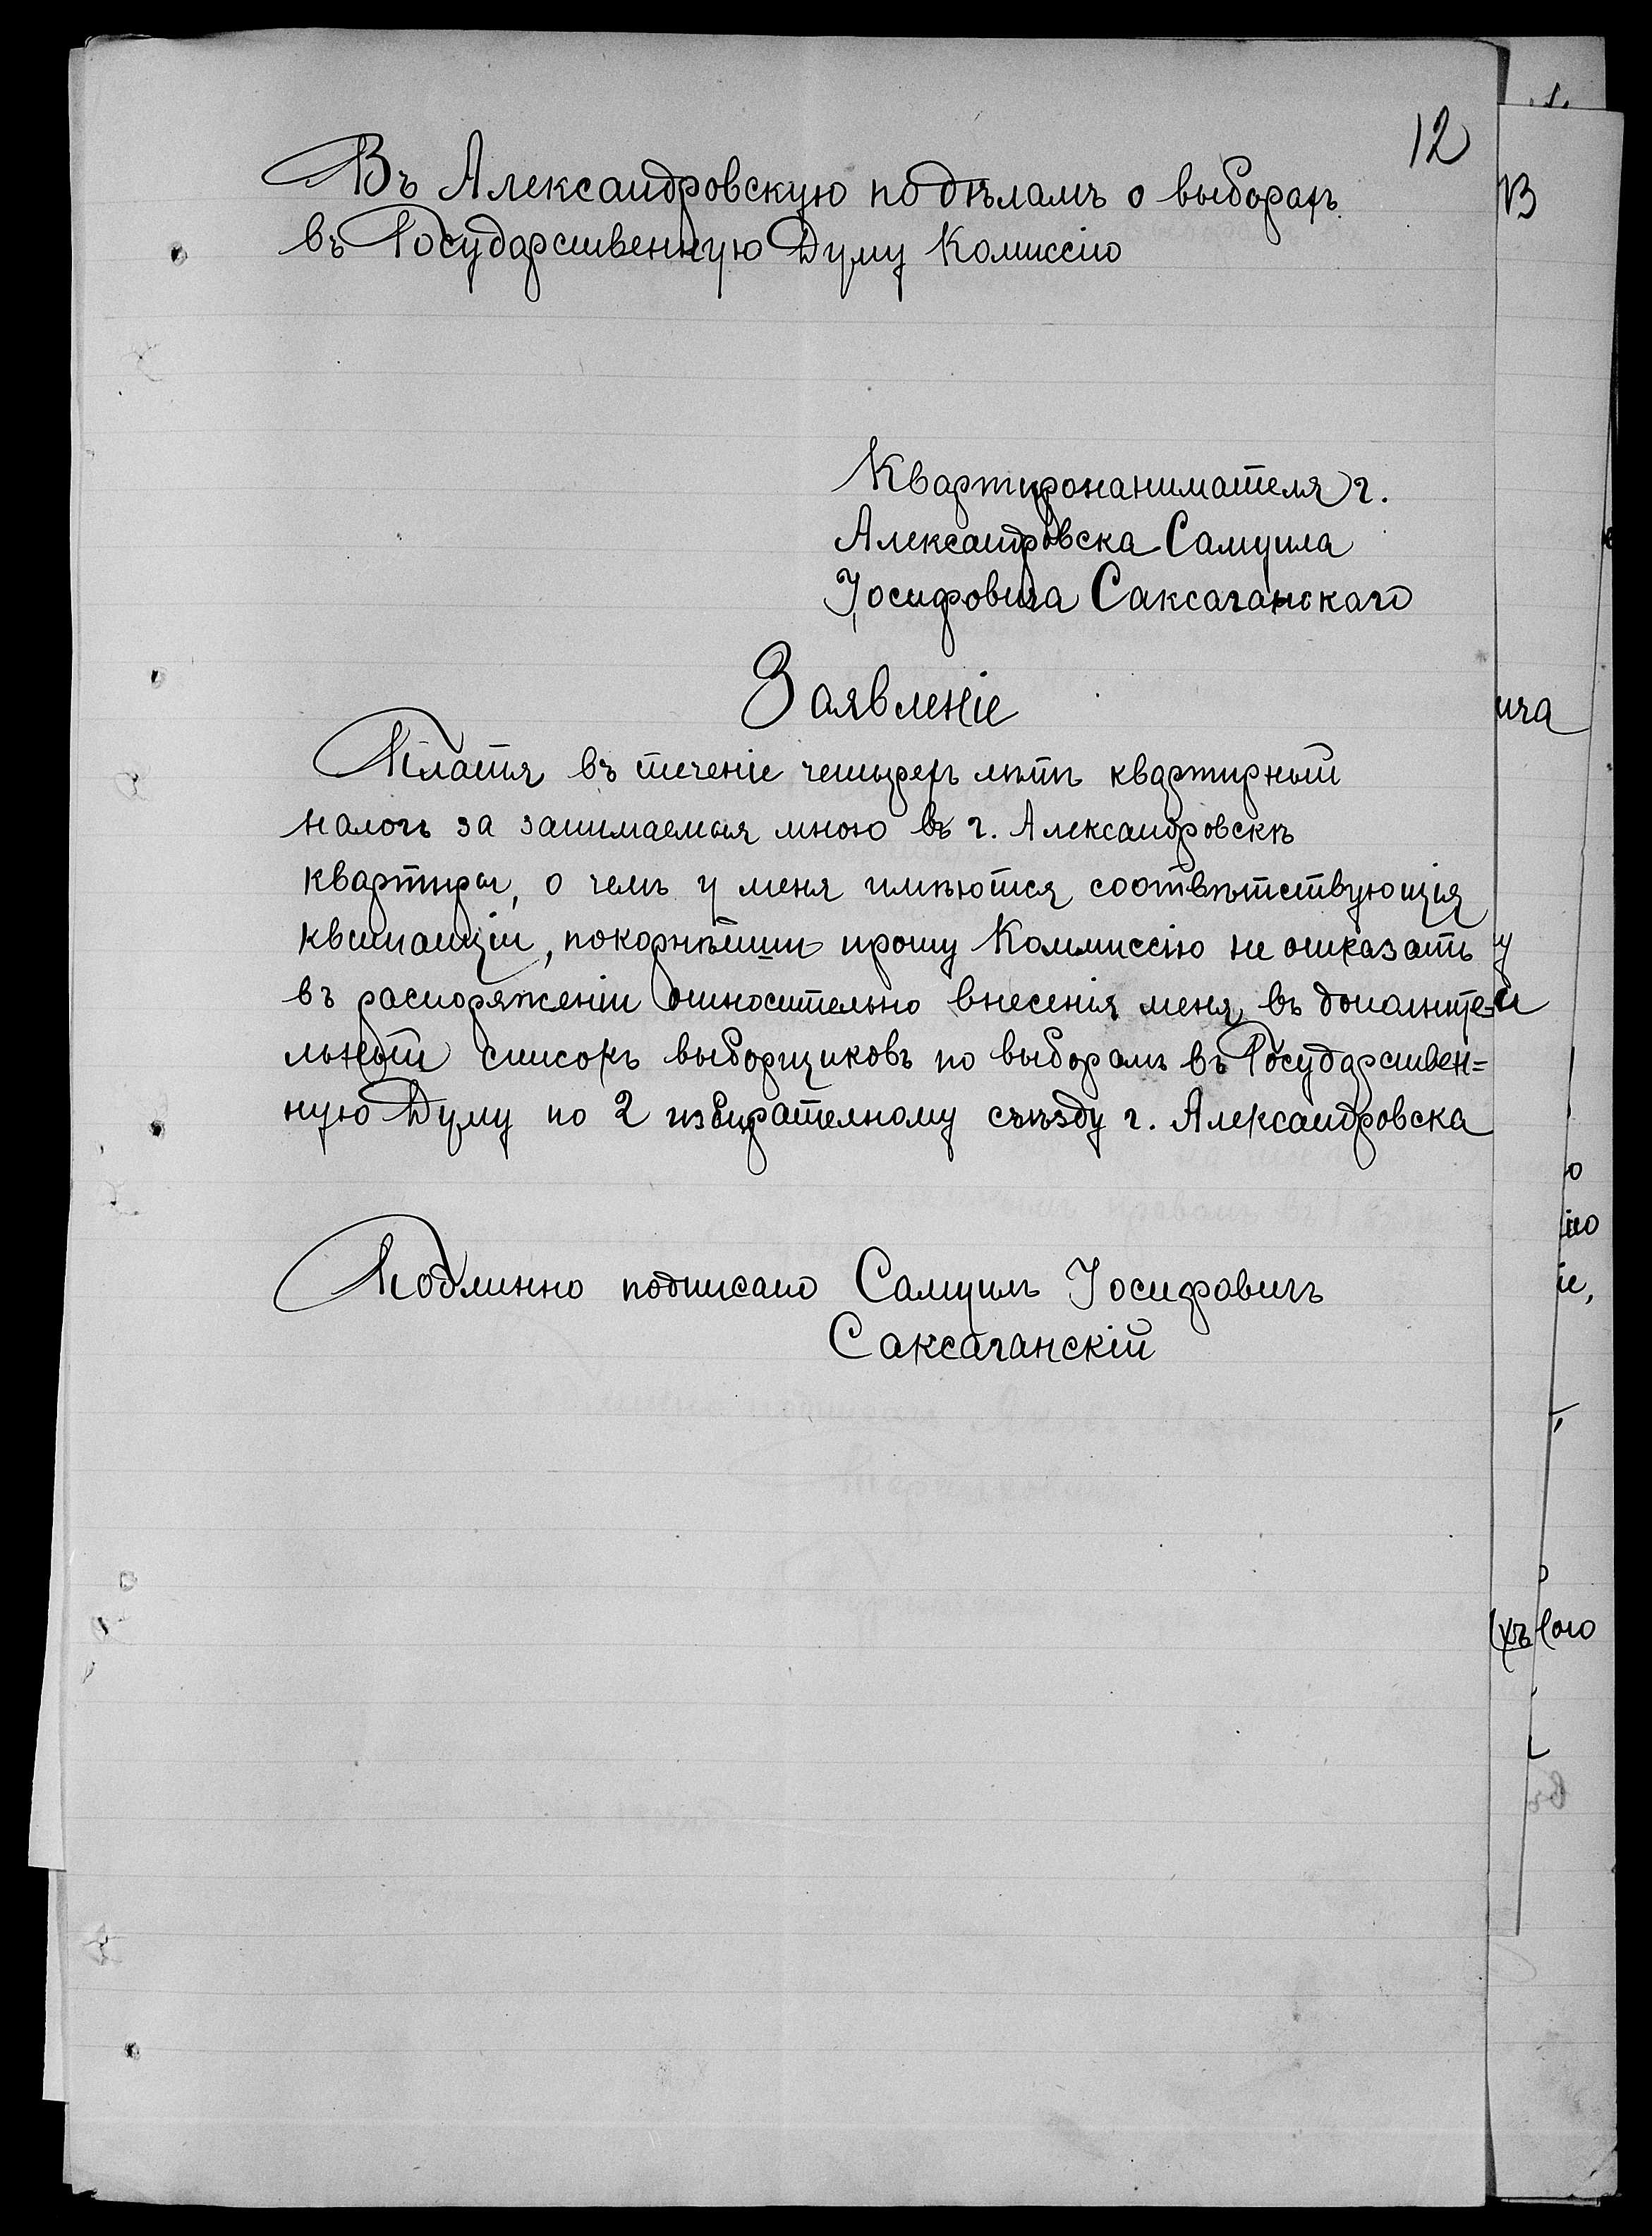 12
Въ Александровскую по дѣламъ о выборахъ
въ Государственную Думу Комиссію
Квартиронанимателя г.
Александровска Самуила
Іосифовича Саксаганскаго
Заявленіе
Платя въ теченіе четырехъ лѣтъ квартирный
налогъ за занимаемыя мною въ г. Александровскѣ
квартиры, о чемъ у меня имѣются соотвѣтствующія
квитанціи, покорнѣйше прошу Коммиссію не отказать
въ распоряженіи относительно внесенія меня въ дополните-
льный списокъ выборщиковъ по выборамъ въ Государствен=
ную Думу по 2 избирателному съѣзду г. Александровска
Подлинно подписано Самуилъ Іосифовичъ
Саксаганскій